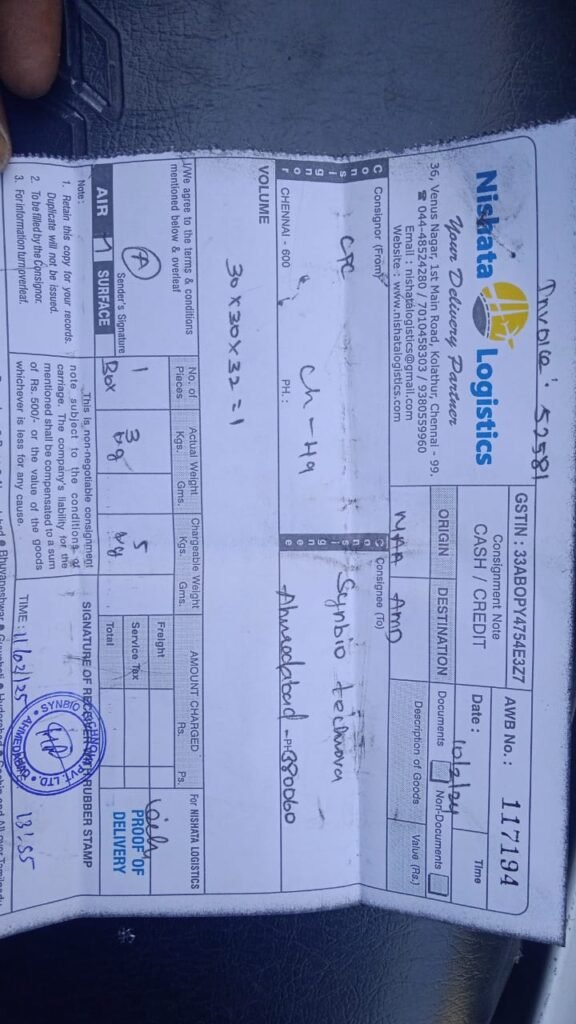 Invoice: 52581
Nishata Logistics
Your Delivery Partner
36, Venus Nagar, 1st Main Road, Kolathur, Chennai - 99.
☎ 044-48524280 / 7010458303 / 9380559960
Email : nishatalogistics@gmail.com
Website : www.nishatalogistics.com
GSTIN : 33ABOPY4754E3Z7
Consignment Note
CASH / CREDIT
AWB No.: 117194
Date : 10/2/24
Time
ORIGIN
DESTINATION
MAA AMD
Documents
Non-Documents
Description of Goods
Value (Rs.)
Consignor (From)
CPC
Ch - 49
CHENNAI - 600
PH. :
Consignee (To)
Synbio Technova
Ahmedabad - 380060
PH
VOLUME
30 x 30 x 32 = 1
I/We agree to the terms & conditions
mentioned below & overleaf
Sender's Signature
No. of
Pieces
1
Box
Actual Weight
Kgs.
Gms.
3
kg
Chargeable Weight
Kgs.
Gms.
5
kg
AMOUNT CHARGED
Rs.
Ps.
Freight
Service Tax
Total
For NISHATA LOGISTICS
PROOF OF
DELIVERY
AIR
SURFACE
Note:
1. Retain this copy for your records.
Duplicate will not be issued.
2. To be filled by the Consignor.
3. For information turn overleaf.
This is non-negotiable consignment
note subject to the conditions of
carriage. The company's liability for the
mentioned shall be compensated to a sum
of Rs. 500/- or the value of the goods
whichever is less for any cause.
SIGNATURE OF RECEIVER WITH RUBBER STAMP
SYNBIO PVT. LTD.
TIME : 11/02/25 13:55